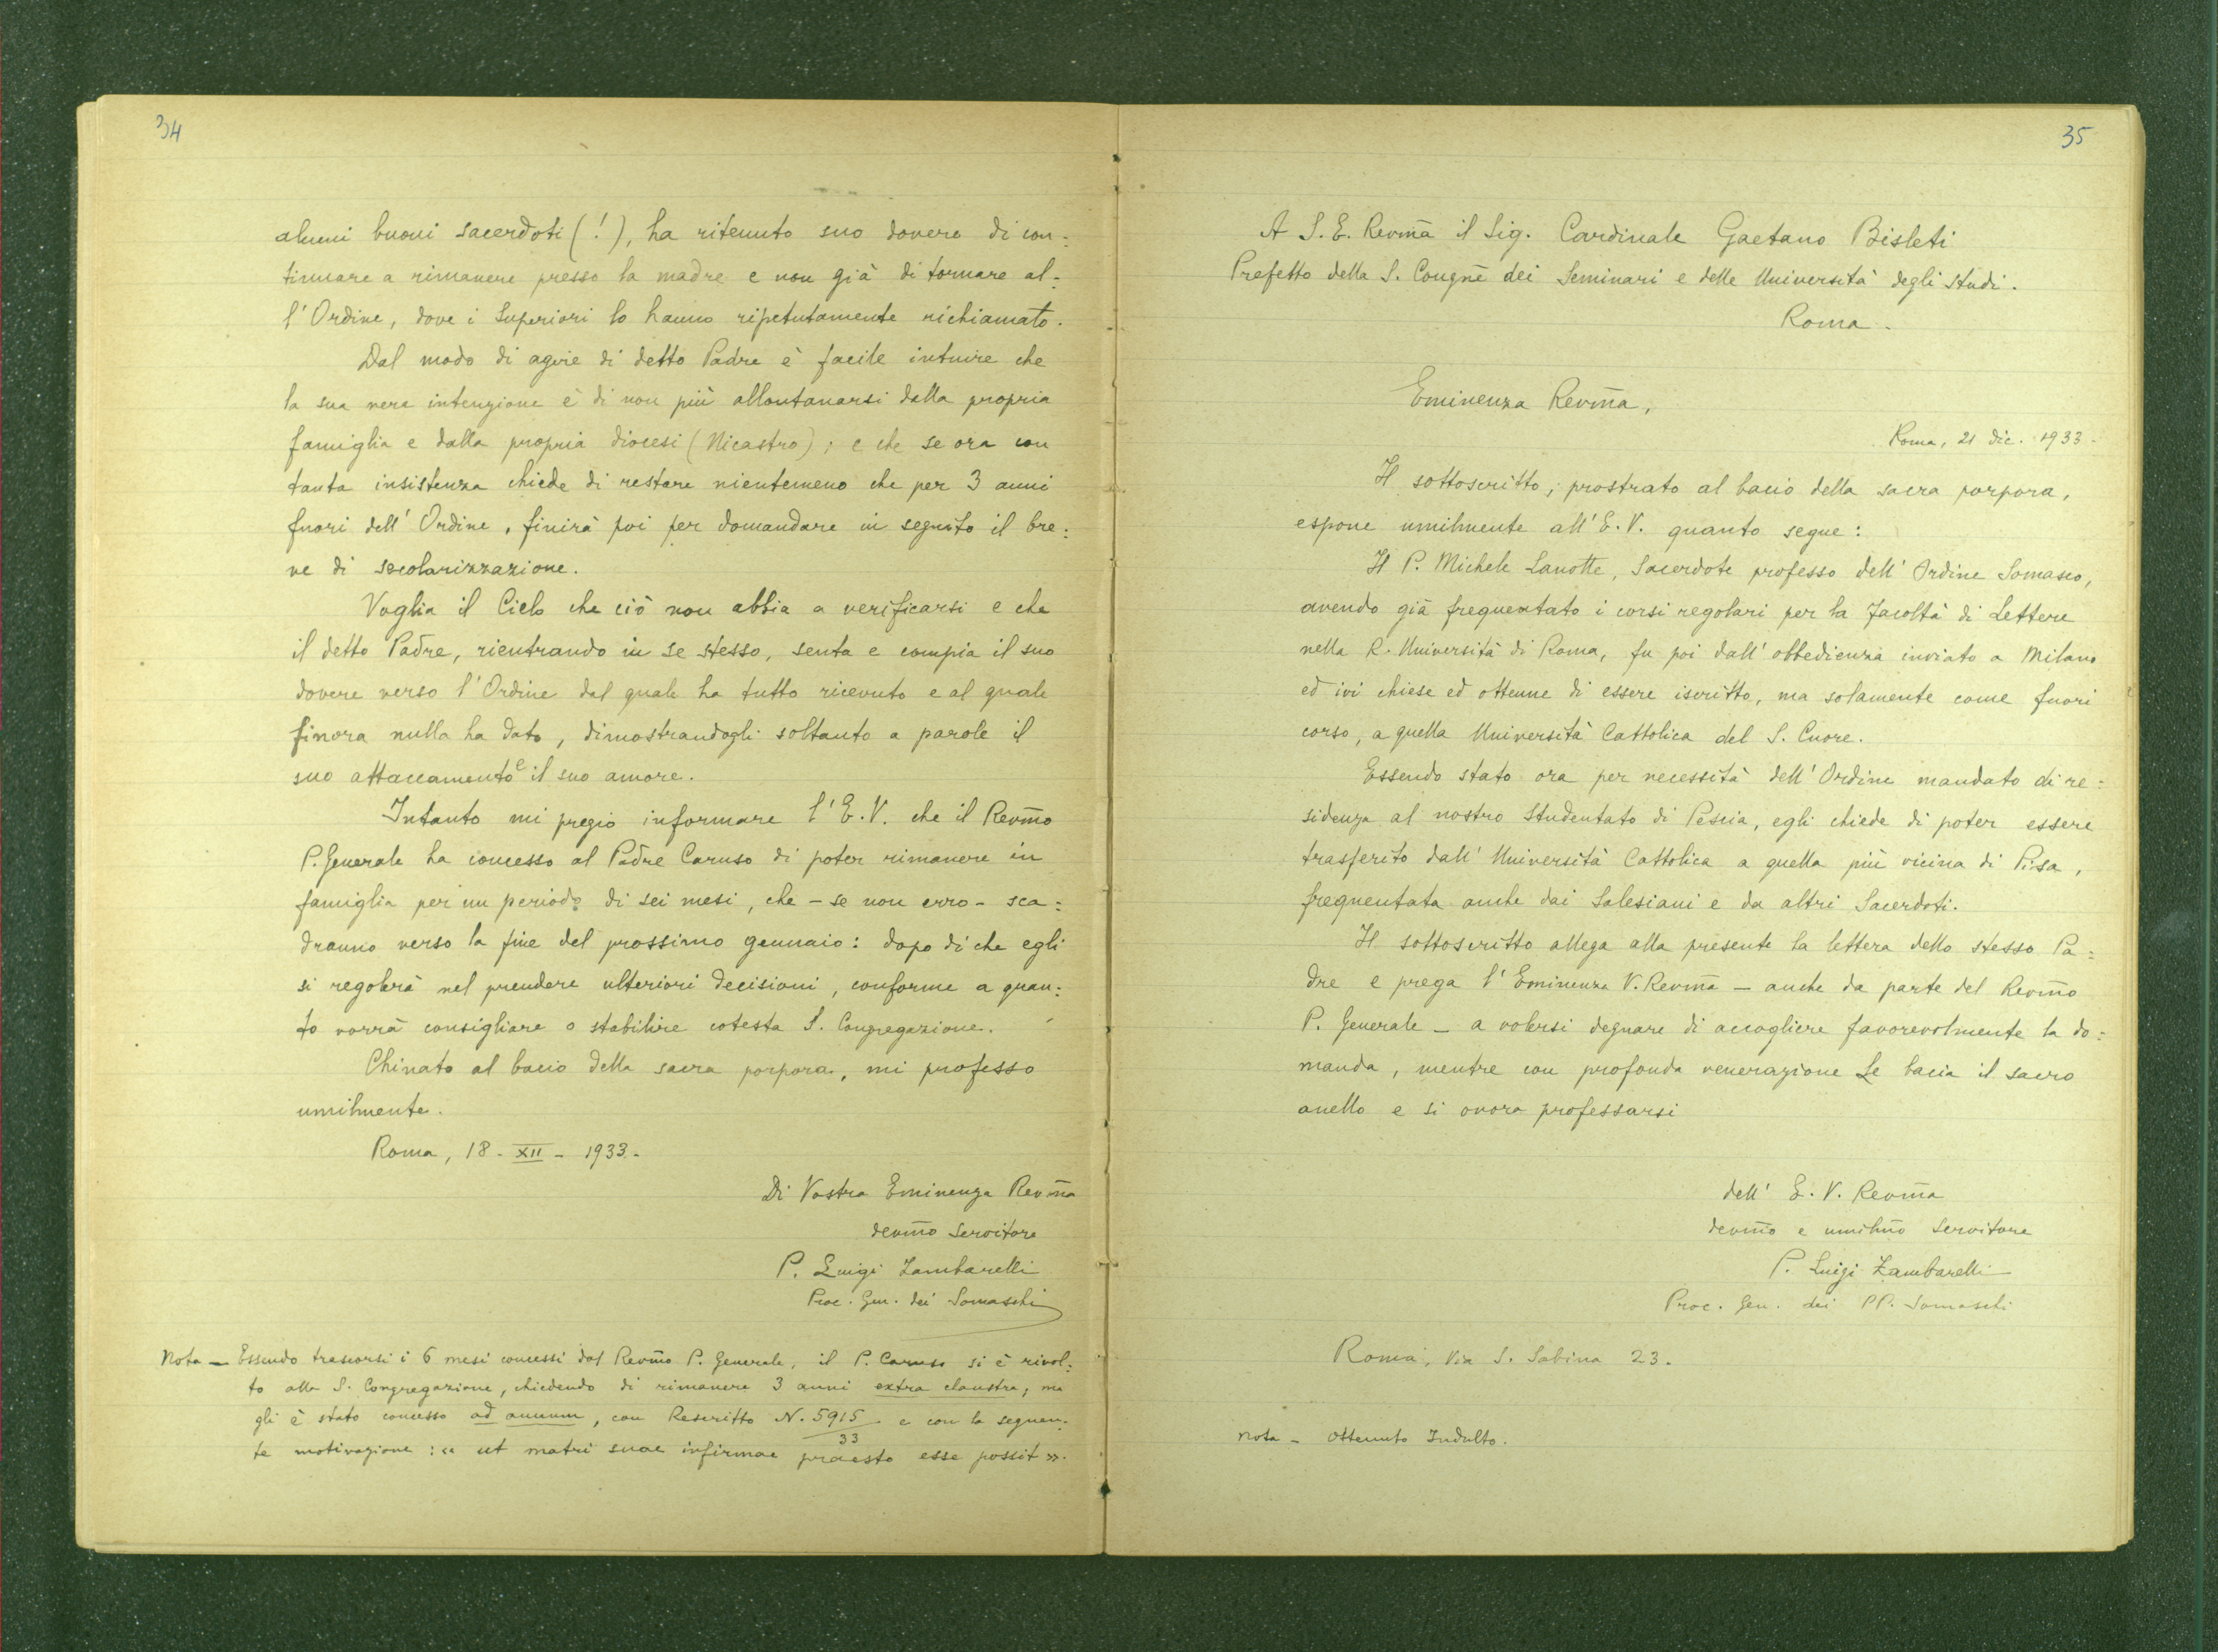 34
alcuni buoni sacerdoti (!), ha ritenuto suo dovere di con:
tinuare a rimanere presso la madre e non già di tornare al:
l'Ordine, dove i Superiori lo hanno ripetutamente richiamato.
Dal modo di agire di detto Padre è facile intuire che
la sua vera intenzione è di non più allontanarsi dalla propria
famiglia e dalla propria diocesi (Nicastro); e che se ora con
tanta insistenza chiede di restare nientemeno che per 3 anni
fuori dell'Ordine, finirà poi per domandare in seguito il bre:
ve di secolarizzazione.
Voglia il Cielo che ciò non abbia a verificarsi e che
il detto Padre, rientrando in se stesso, senta e compia il suo
dovere verso l'Ordine dal quale ha tutto ricevuto e al quale
finora nulla ha dato, dimostrandogli soltanto a parole il
suo attaccamento e il suo amore.
Intanto mi pregio informare l'E.V. che il Revm̃o
P. Generale ha concesso al Padre Caruso di poter rimanere in
famiglia per un periodo di sei mesi, che - se non erro - sca:
dranno verso la fine del prossimo gennaio: dopo di che egli
si regolerà nel prendere ulteriori decisioni, conforme a quan:
to vorrà consigliare o stabilire cotesta S. Congregazione.
Chinato al bacio della sacra porpora, mi professo
umilmente.
Roma, 18 - XII - 1933.
Di Vostra Eminenza Revm̃a
devm̃o servitore
P. Luigi Zambarelli
Proc. Gen. dei Somaschi
Nota — Essendo trascorsi i 6 mesi concessi dal Revm̃o P. Generale, il P. Caruso si è rivol:
to alla S. Congregazione, chiedendo di rimanere 3 anni extra claustra; ma
gli è stato concesso ad annum, con Rescritto N. 5915/33 e con la seguen:
te motivazione: « ut matri suae infirmae praesto esse possit ».
35
A S. E. Revm̃a il Sig. Cardinale Gaetano Bisleti
Prefetto della S. Congnẽ dei Seminari e delle Università degli Studi.
Roma.
Eminenza Revm̃a,
Roma, 21 dic. 1933.
Il sottoscritto, prostrato al bacio della sacra porpora,
espone umilmente all'E.V. quanto segue:
Il P. Michele Lanotte, Sacerdote professo dell'Ordine Somasco,
avendo già frequentato i corsi regolari per la Facoltà di Lettere
nella R. Università di Roma, fu poi dall'obbedienza inviato a Milano
ed ivi chiese ed ottenne di essere iscritto, ma solamente come fuori
corso, a quella Università Cattolica del S. Cuore.
Essendo stato ora per necessità dell'Ordine mandato di re:
sidenza al nostro Studentato di Pescia, egli chiede di poter essere
trasferito dall'Università Cattolica a quella più vicina di Pisa,
frequentata anche dai Salesiani e da altri Sacerdoti.
Il sottoscritto allega alla presente la lettera dello stesso Pa:
dre e prega l'Eminenza V. Revm̃a — anche da parte del Revm̃o
P. Generale — a volersi degnare di accogliere favorevolmente la do:
manda, mentre con profonda venerazione Le bacia il sacro
anello e si onora professarsi
dell'E. V. Revm̃a
devm̃o e umilm̃o servitore
P. Luigi Zambarelli
Proc. Gen. dei PP. Somaschi
Roma, Via S. Sabina 23.
Nota - Ottenuto Indulto.